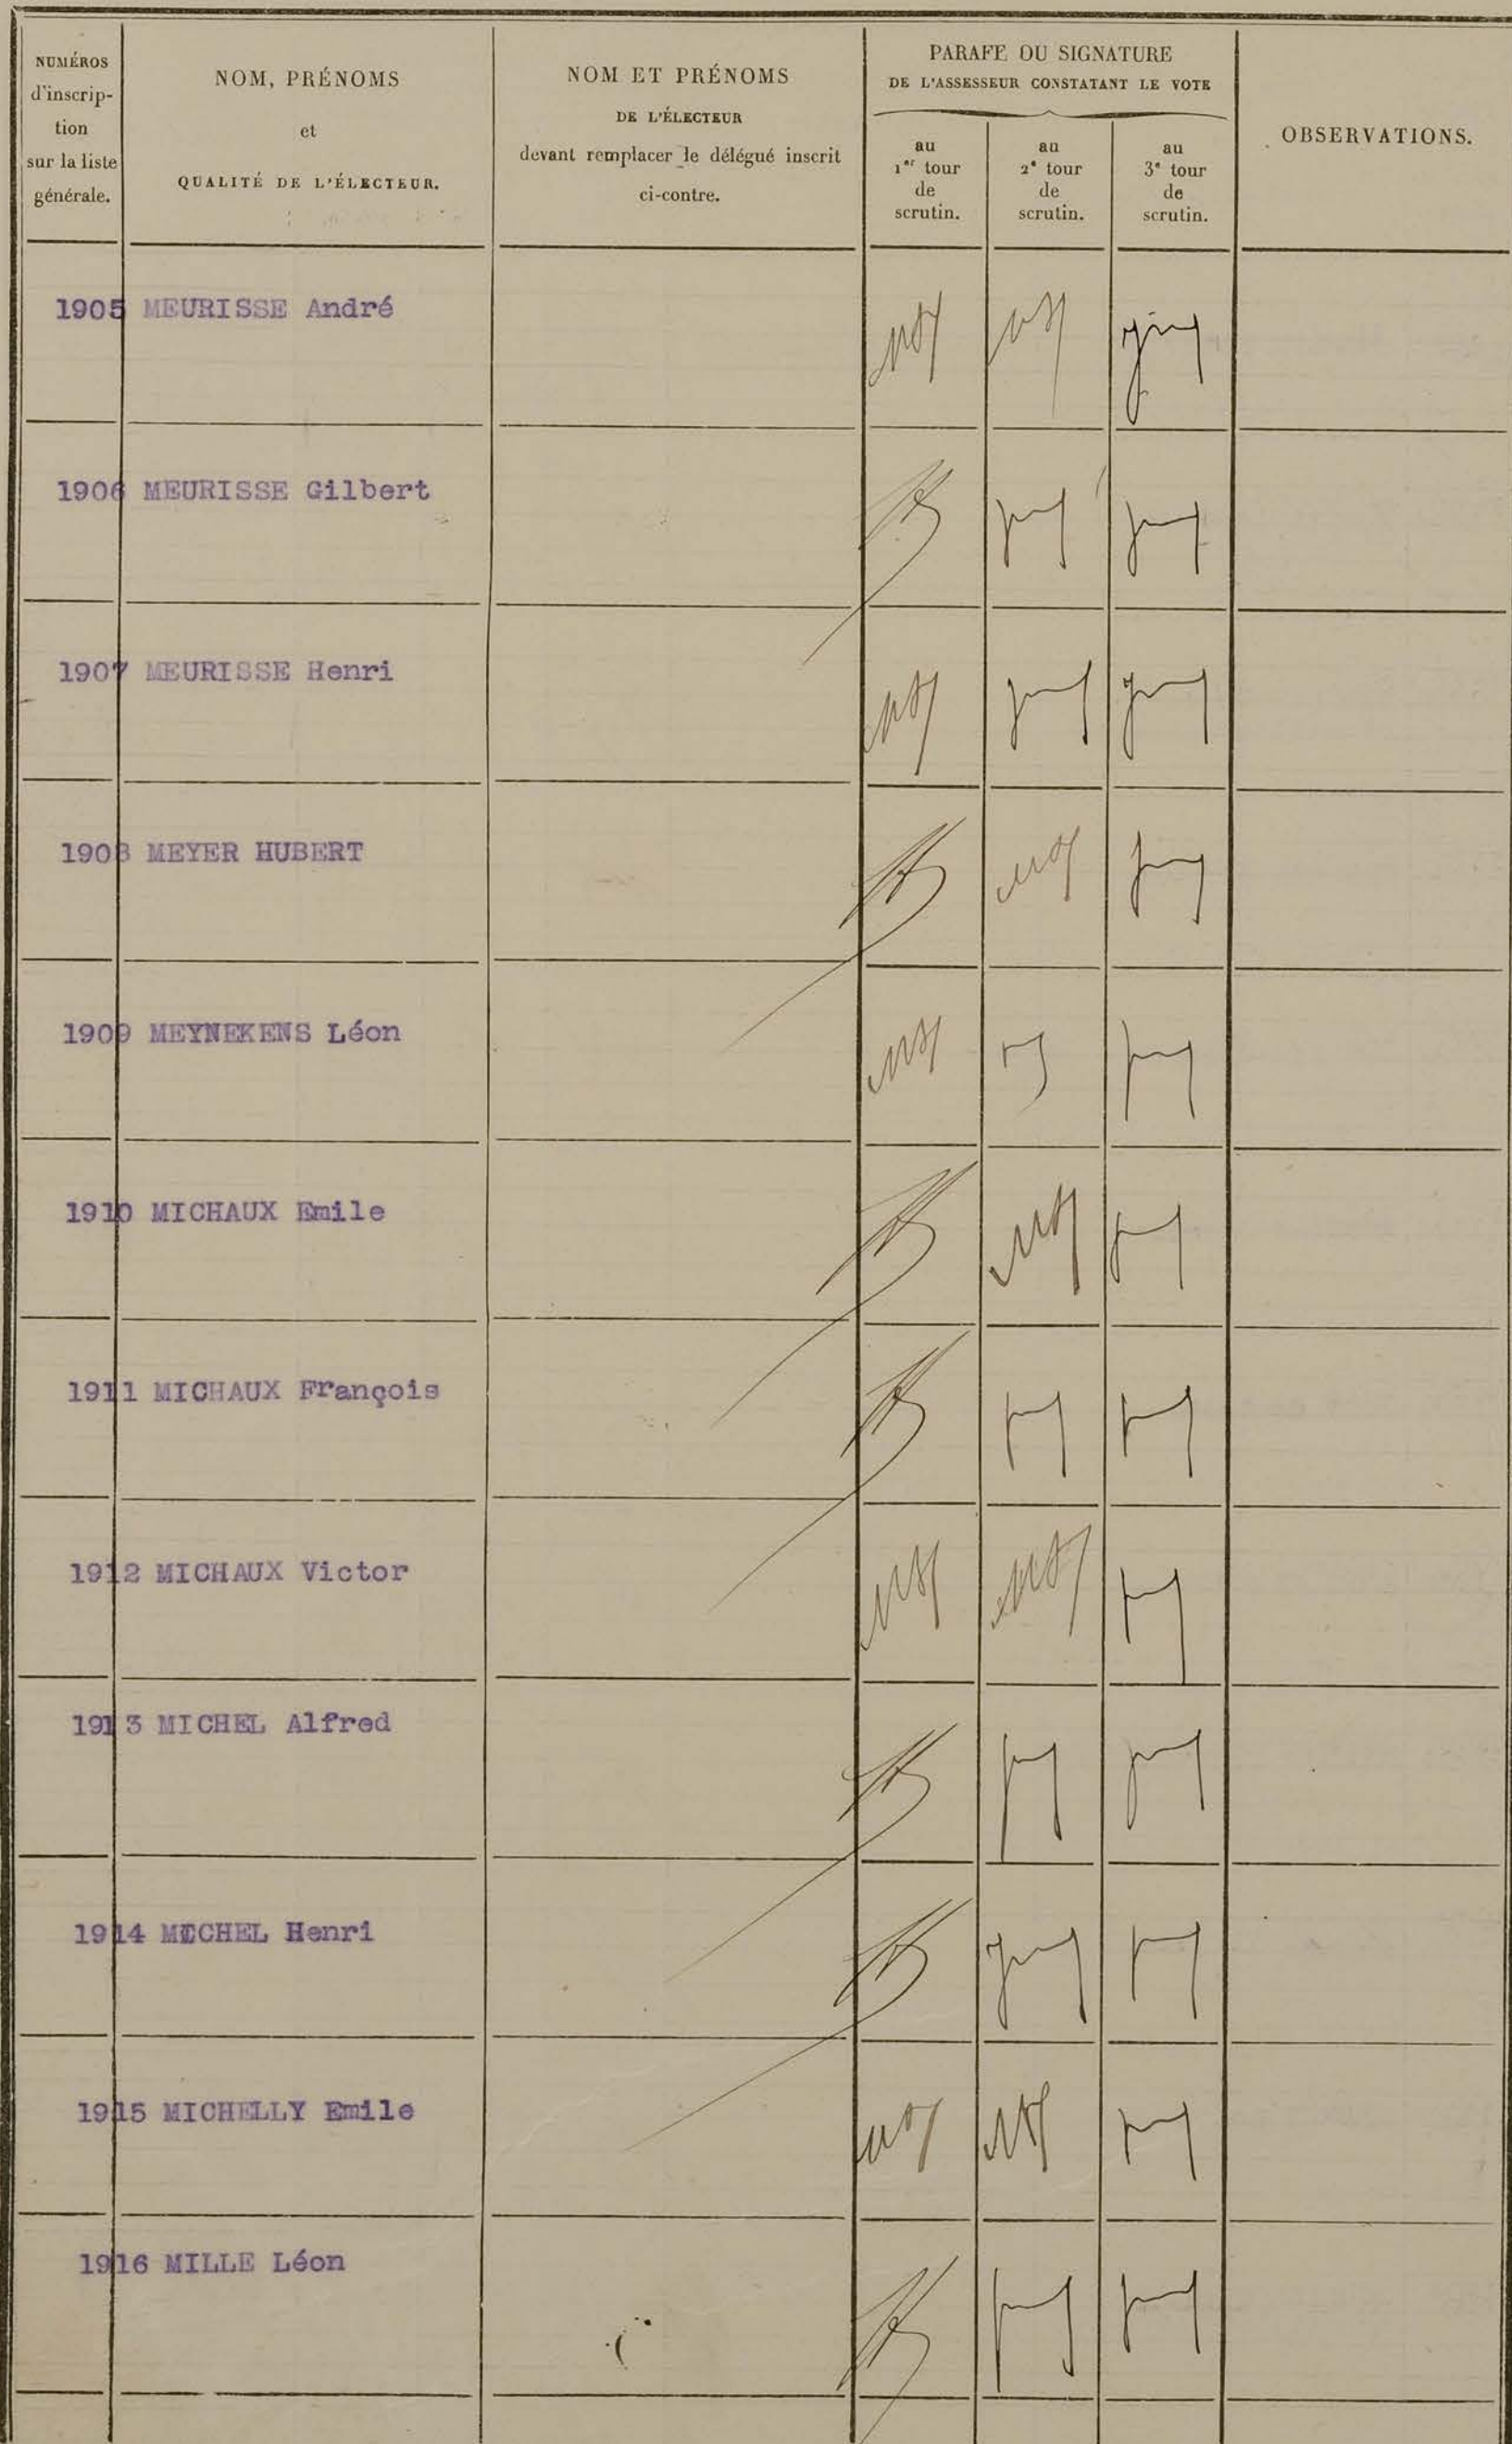 NUMÉROS
d'inscrip-
tion
sur la liste
générale.
NOM, PRÉNOMS
et
QUALITÉ DE L'ÉLECTEUR.
NOM ET PRÉNOMS
DE L'ÉLECTEUR
devant remplacer le délégué inscrit
ci-contre.
PARAFE OU SIGNATURE
DE L'ASSESSEUR CONSTATANT LE VOTE
au
1er tour
de
scrutin.
au
2e tour
de
scrutin.
au
3e tour
de
scrutin.
OBSERVATIONS.
1905 MEURISSE André
1906 MEURISSE Gilbert
1907 MEURISSE Henri
1908 MEYER HUBERT
1909 MEYNEKENS Léon
1910 MICHAUX Emile
1911 MICHAUX François
1912 MICHAUX Victor
1913 MICHEL Alfred
1914 MICHEL Henri
1915 MICHELLY Emile
1916 MILLE Léon